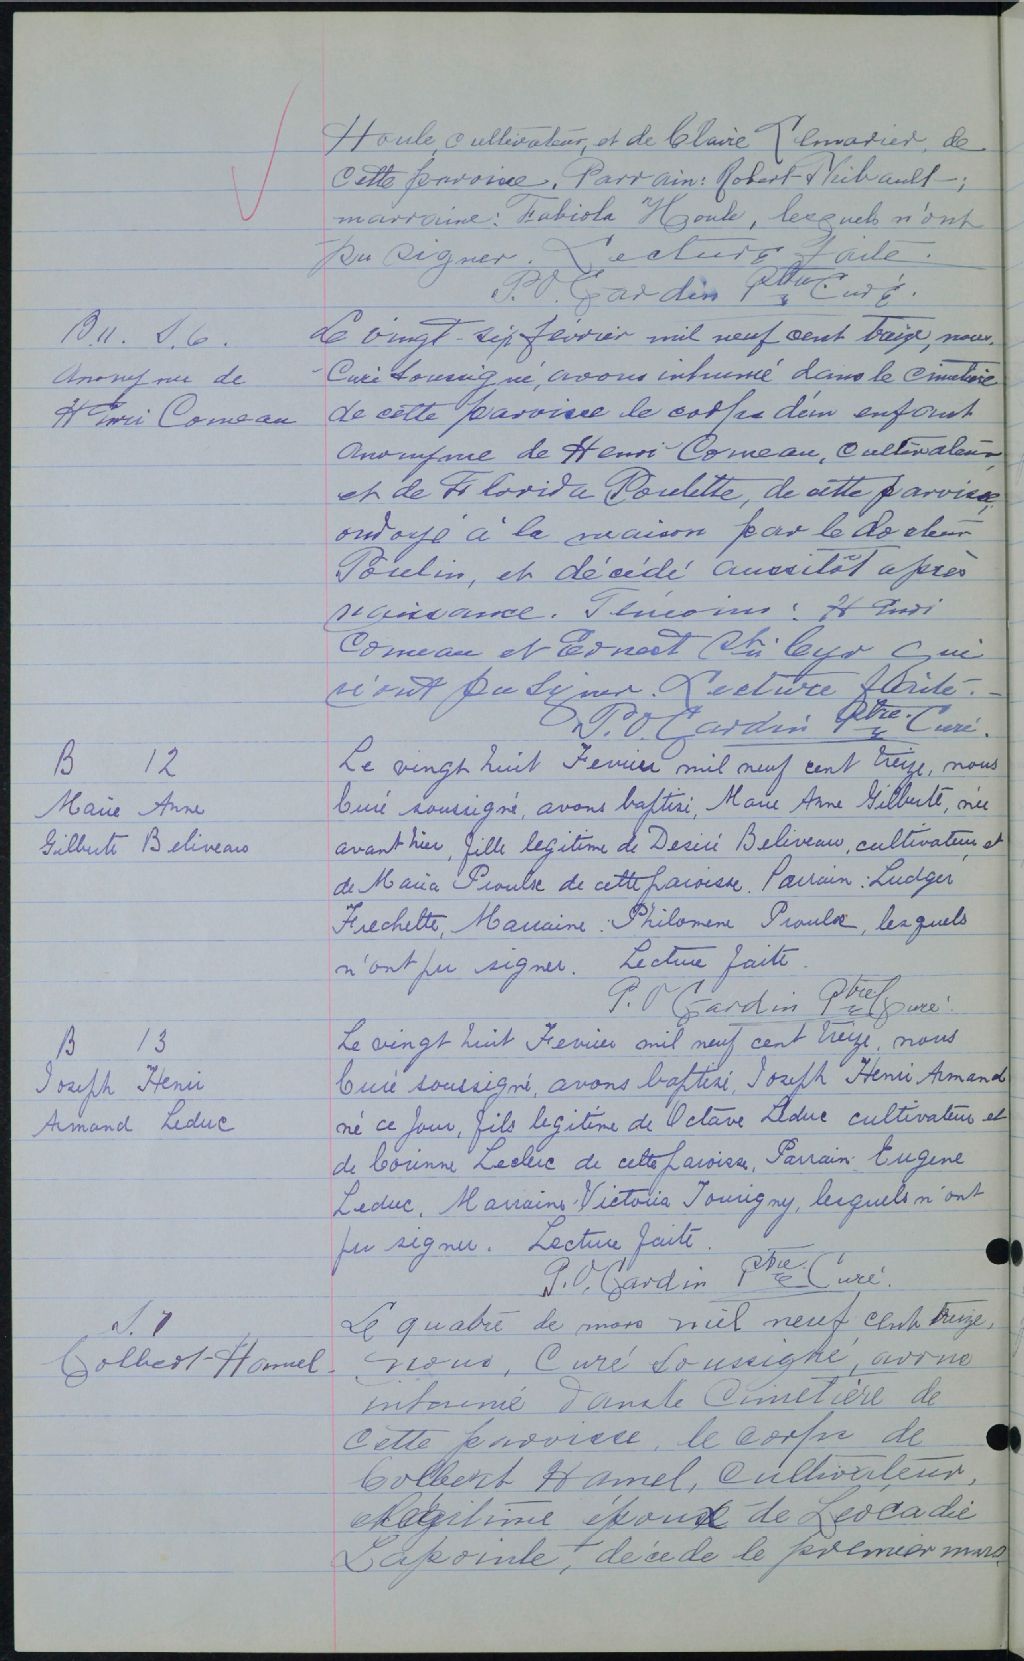 Houle, cultivateur, et de Claire Lemarier, de
cette paroisse. Parrain: Robert Thibault;
marraine: Fabiola Houle, lesquels n'ont
pu signer. Lecture faite.
P.O. Gardin Ptre Curé.
B.11. S.6.
Anonyme de
Henri Comeau
Le vingt-six février mil neuf cent treize, nous,
Curé soussigné, avons inhumé dans le cimetière
de cette paroisse le corps d'un enfant
anonyme de Henri Comeau, cultivateur
et de Florida Poulette, de cette paroisse,
ondoyé à la maison par le docteur
Poulin, et décédé aussitôt après
naissance. Témoins: Henri
Comeau et Ernest Cyr qui
n'ont pu signer. Lecture faite.
P.O. Gardin Ptre. Curé.
B 12
Marie Anne
Gilberte Beliveau
Le vingt huit Fevrier mil neuf cent treize, nous
Curé soussigné, avons baptisé, Marie Anne Gilberte, née
avant hier, fille legitime de Desiré Beliveau, cultivateur et
de Maria Proulx de cette paroisse. Parrain: Ludger
Frechette, Marraine: Philomene Proulx, lesquels
n'ont pu signer. Lecture faite.
P.O Gardin Ptre Curé.
B 13
Joseph Henri
Armand Leduc
Le vingt huit Fevrier mil neuf cent treize, nous
Curé soussigné, avons baptisé, Joseph Henri Armand
né ce jour, fils legitime de Octave Leduc cultivateur et
de Corinne Leclerc de cette paroisse, Parrain Eugene
Leduc, Marraine Victoria Tourigny, lesquels n'ont
pu signer. Lecture faite.
P.O. Gardin Ptre. Curé.
S. 7
Colbert Hamel
Le quatre de mars mil neuf cent treize,
nous, Curé soussigné, avons
inhumé dans le Cimetière de
cette paroisse, le corps de
Colbert Hamel, cultivateur,
légitime époux de Leocadie
Lapointe, décédé le premier mars